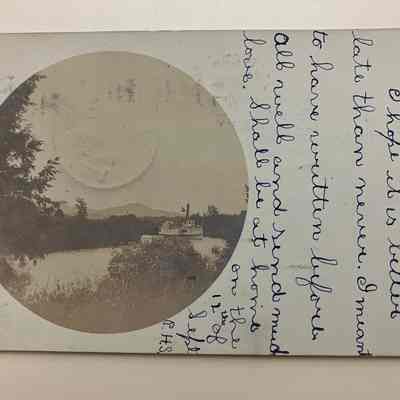 I hope it is better
late than never. I meant
to have written before
All well and send much
love. Shall be at home
on the
12th of
Sept